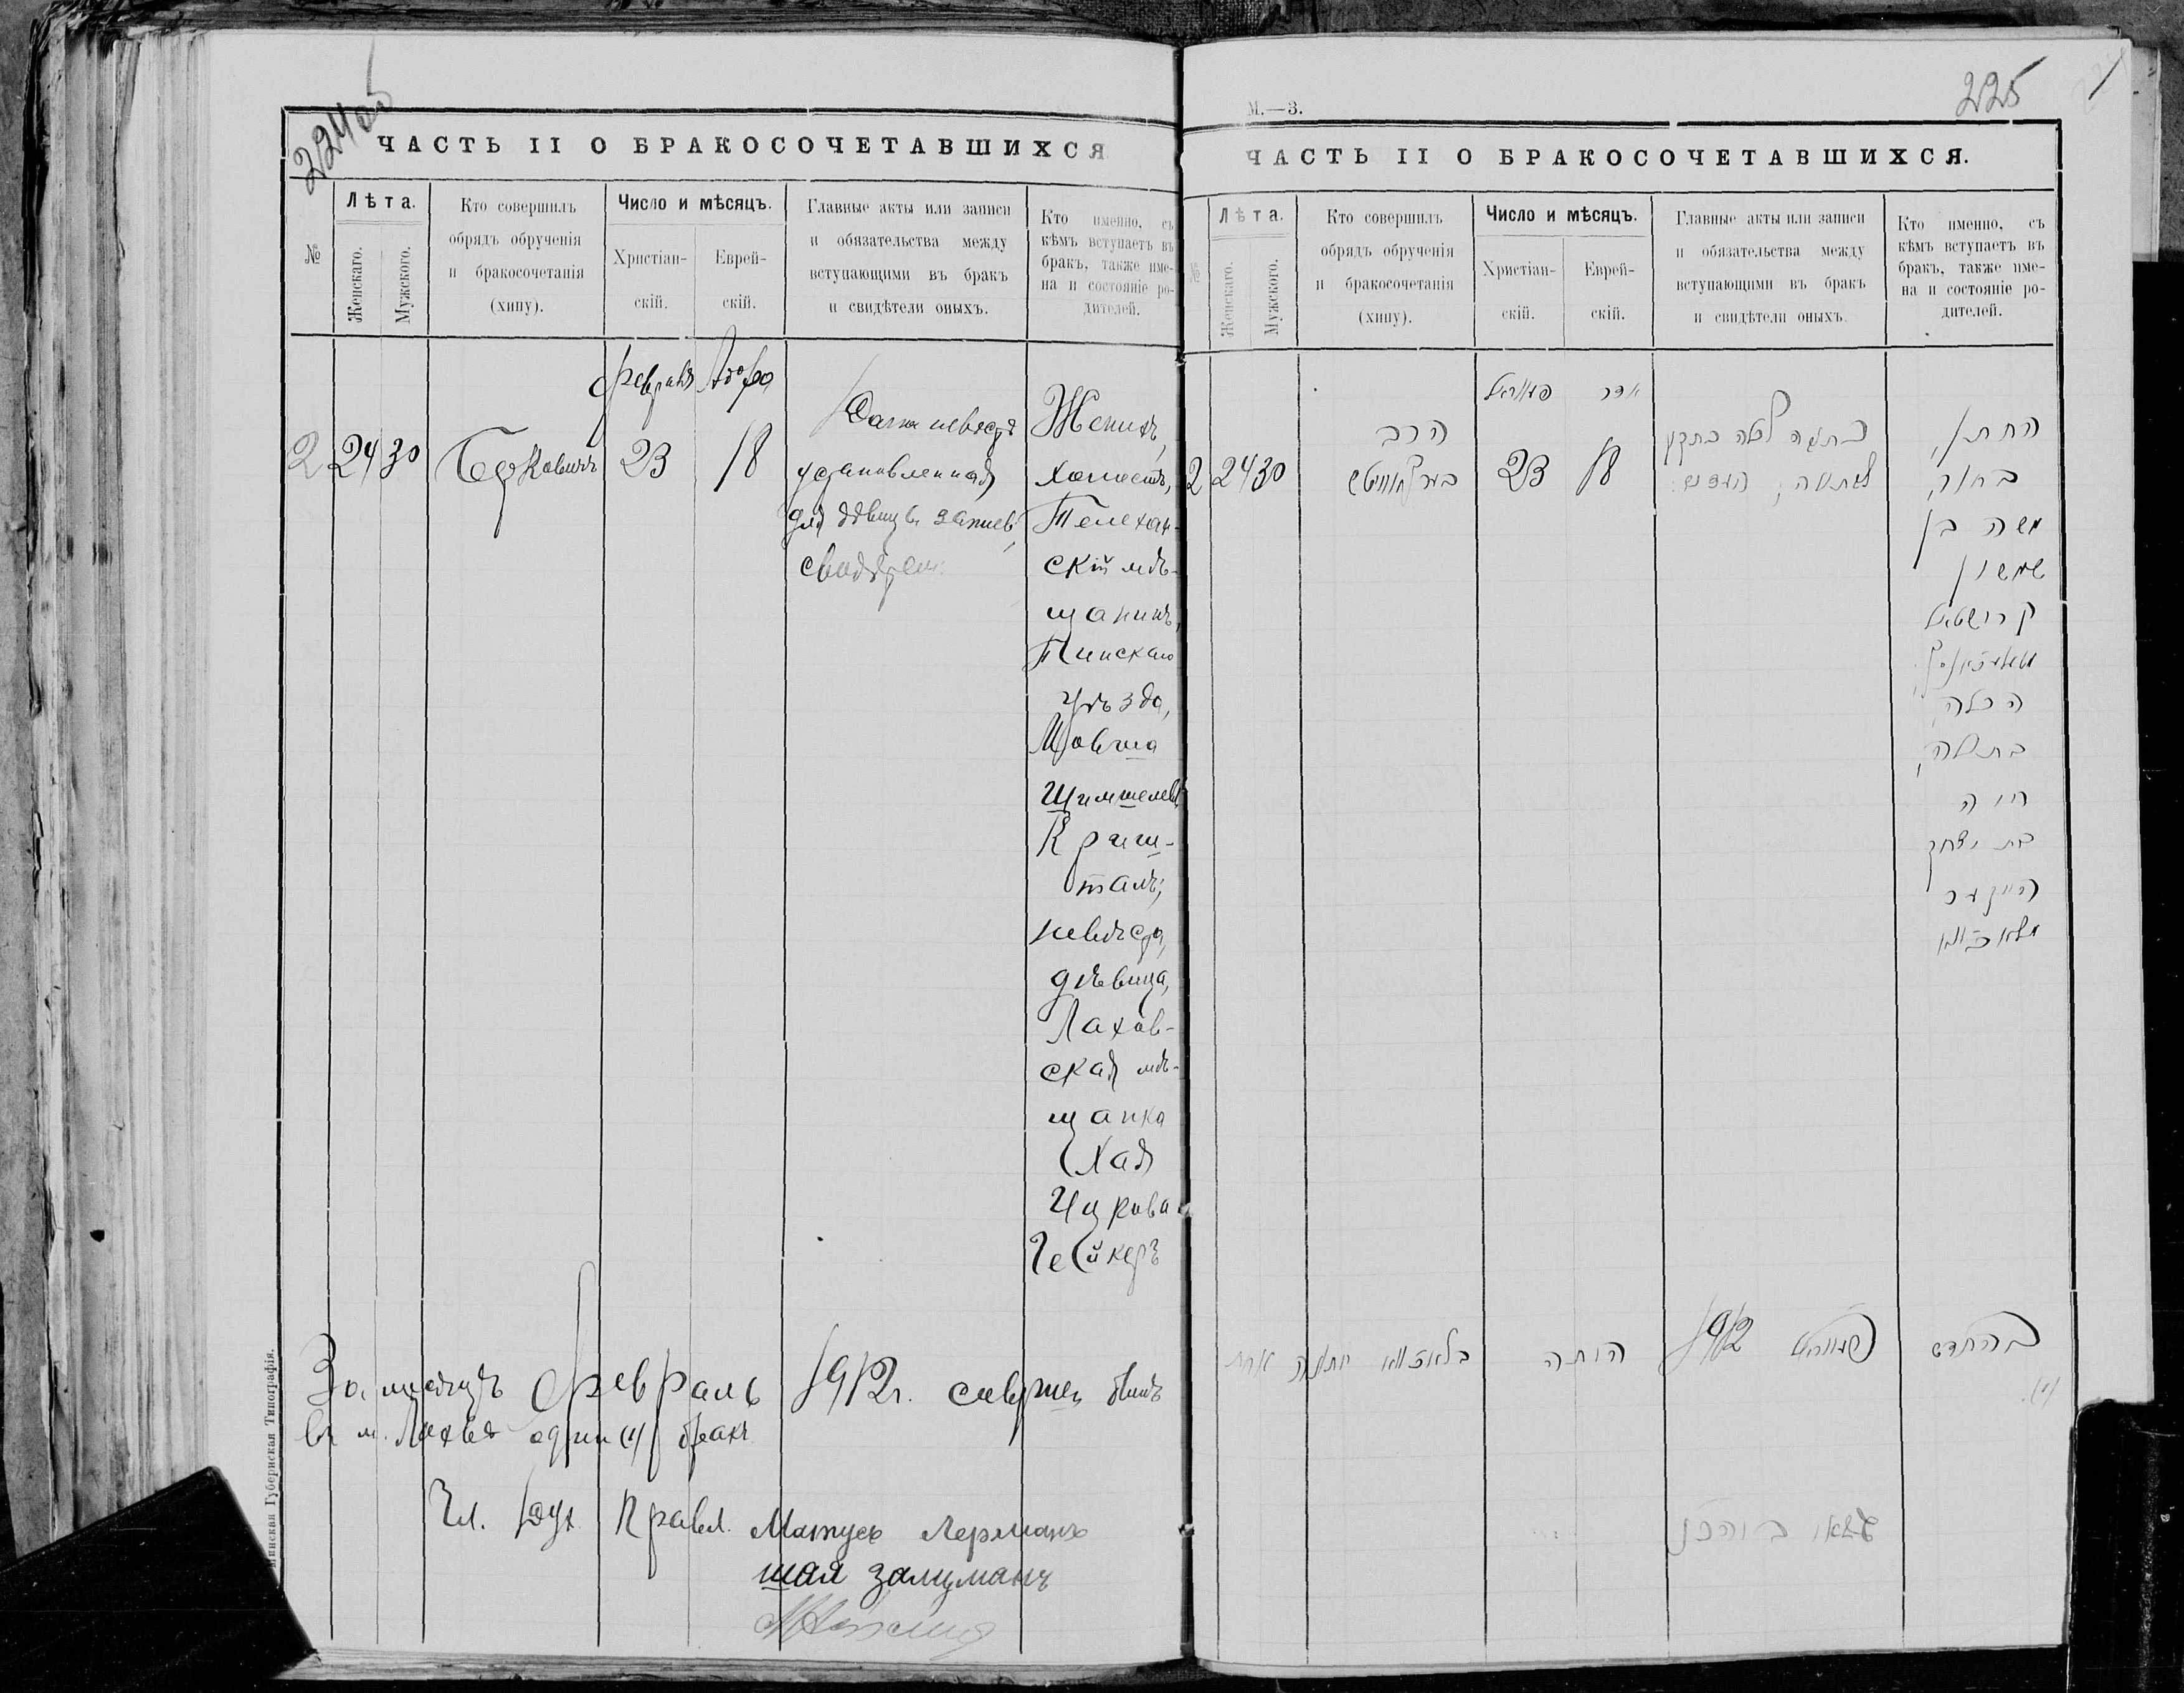 224об
ЧАСТЬ II О БРАКОСОЧЕТАВШИХСЯ
№
Лѣта.
Женскаго.
Мужскаго.
Кто совершилъ
обрядъ обрученія
и бракосочетанія
(хипу).
Число и мѣсяцъ.
Христіан-
скій.
Еврей-
скій.
Главные акты или записи
и обязательства между
вступающими въ бракъ
и свидѣтели оныхъ.
Кто именно, съ
кѣмъ вступаетъ въ
бракъ, также име-
на и состояніе ро-
дителей.
Февраля Адора
2 24 30 Берковичъ 23 18
Дана невѣстѣ
установленная
для дѣвицъ запись,
свидѣтели:
Женихъ,
холостъ,
Телехан-
скій мѣ-
щанинъ,
Пинскаго
уѣзда,
Мовша
Шимшелевъ
Криш-
талъ;
невѣста,
дѣвица,
Лахов-
ская мѣ-
щанка
Хая
Ицкова
Чейкеръ
За мѣсяцъ Февраль 1912г. совершен былъ
въ м. Лахвѣ один (1) бракъ
Чл. Дух. Правл. Матусъ Лерманъ
шая залцманъ
Минская Губернская Типографія.
М.—3.
225
ЧАСТЬ II О БРАКОСОЧЕТАВШИХСЯ.
№
Лѣта.
Женскаго.
Мужскаго.
Кто совершилъ
обрядъ обрученія
и бракосочетанія
(хипу).
Число и мѣсяцъ.
Христіан-
скій.
Еврей-
скій.
Главные акты или записи
и обязательства между
вступающими въ бракъ
и свидѣтели оныхъ.
Кто именно, съ
кѣмъ вступаетъ въ
бракъ, также име-
на и состояніе ро-
дителей.
אדר
2 24 30
הרב
בערקאוויטש
23 18
החתן,
בחור,
משה בן
שמשון
קרישטאל
הכלה,
בתולה,
חיה
בת יצחק
בהחדש 1912 היתה
(1).